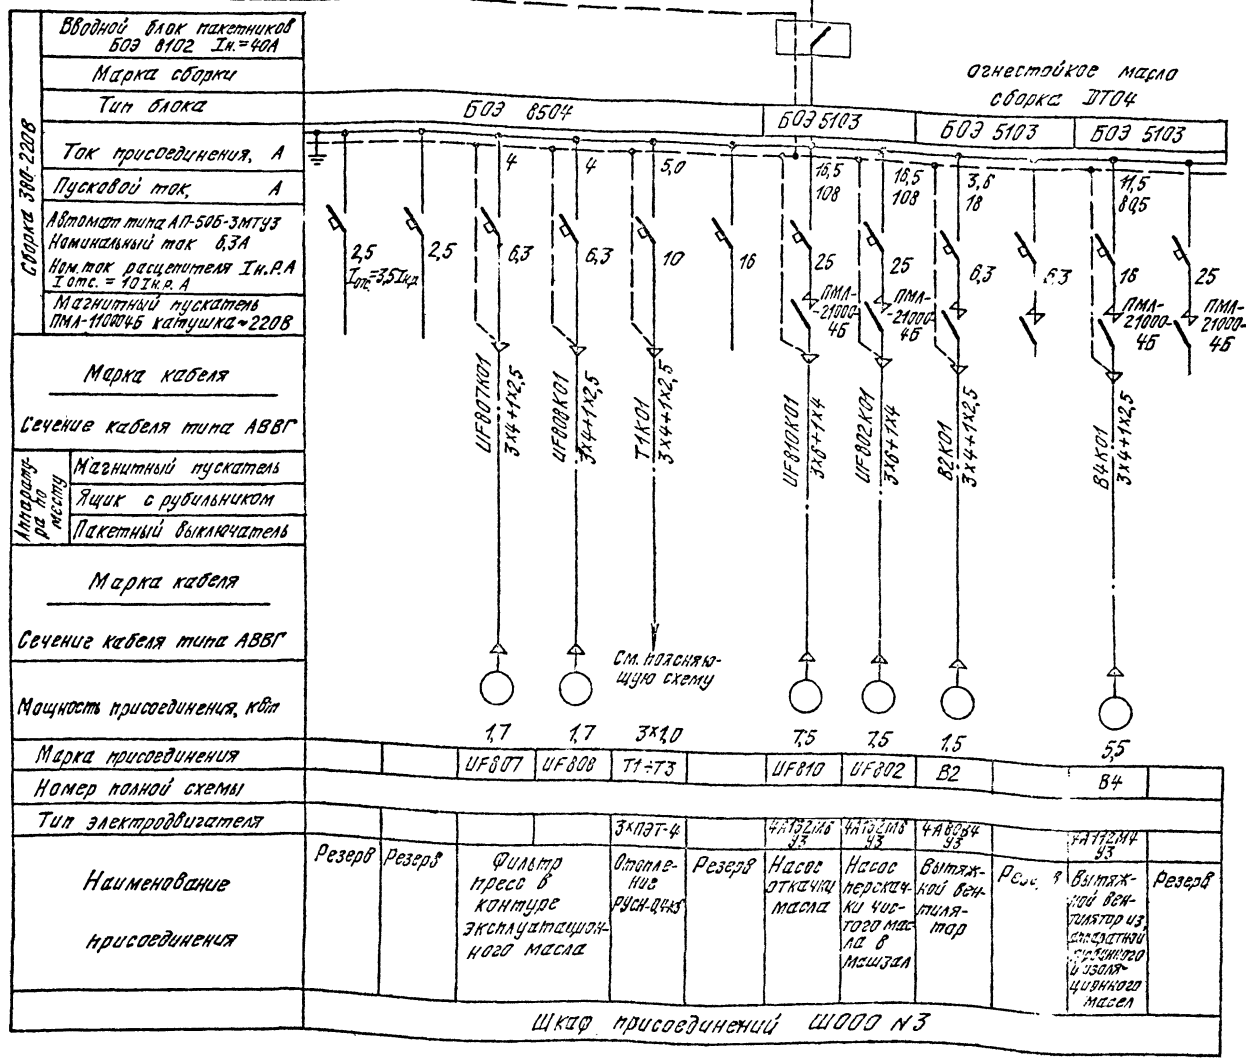 Вводной блок пакетников
БОЭ 8102 Iн.=40А
Марка сборки
Тип блока
Сборка 380-220В
Ток присоединения, А
Пусковой ток, А
Автомат типа АП-50Б-3МТУ3
Номинальный ток 6,3А
Ном. ток расцепителя Iн.р.А
Iотс. = 10Iн.р. А
Магнитный пускатель
ПМЛ-110004Б катушка~220В
Марка кабеля
Сечение кабеля типа АВВГ
Аппарату-
ра по
месту
Магнитный пускатель
Ящик с рубильником
Пакетный выключатель
Марка кабеля
Сечение кабеля типа АВВГ
Мощность присоединения, кВт
Марка присоединения
Номер полной схемы
Тип электродвигателя
Наименование
присоединения
огнестойкое масло
сборка DT04
БОЭ 8504
БОЭ 5103
БОЭ 5103
БОЭ 5103
4
4
5,0
16,5
108
16,5
108
3,6
18
11,5
80,5
2,5
Iотс.=3,5Iн.р.
2,5
6,3
6,3
10
16
25
25
6,3
6,3
16
25
ПМЛ-
-21000-
4Б
ПМЛ-
-21000-
4Б
ПМЛ-
21000-
4Б
ПМЛ-
21000-
4Б
UF807К01
3х4+1х2,5
UF808К01
3х4+1х2,5
Т1К01
3х4+1х2,5
UF810К01
3х6+1х4
UF802К01
3х6+1х4
В2К01
3х4+1х2,5
В4К01
3х4+1х2,5
См. поясняю-
щую схему
1,7
1,7
3х1,0
7,5
7,5
1,5
5,5
UF807
UF808
Т1÷Т3
UF810
UF802
В2
В4
3хПЭТ-4
4А132М6
У3
4А132М6
У3
4А80В4
У3
4А112М4
У3
Резерв
Резерв
Фильтр
пресс в
контуре
эксплуатацион-
ного масла
Отопле-
ние
РУСН-0,4кВ
Резерв
Насос
откачки
масла
Насос
перекач-
ки чис-
того мас-
ла в
машзал
Вытяж-
ной вен-
тиля-
тор
Резерв
Вытяж-
ной вен-
тилятор из
аппаратной
турбинного
и изоля-
ционного
масел
Резерв
Шкаф присоединений Ш000 N3